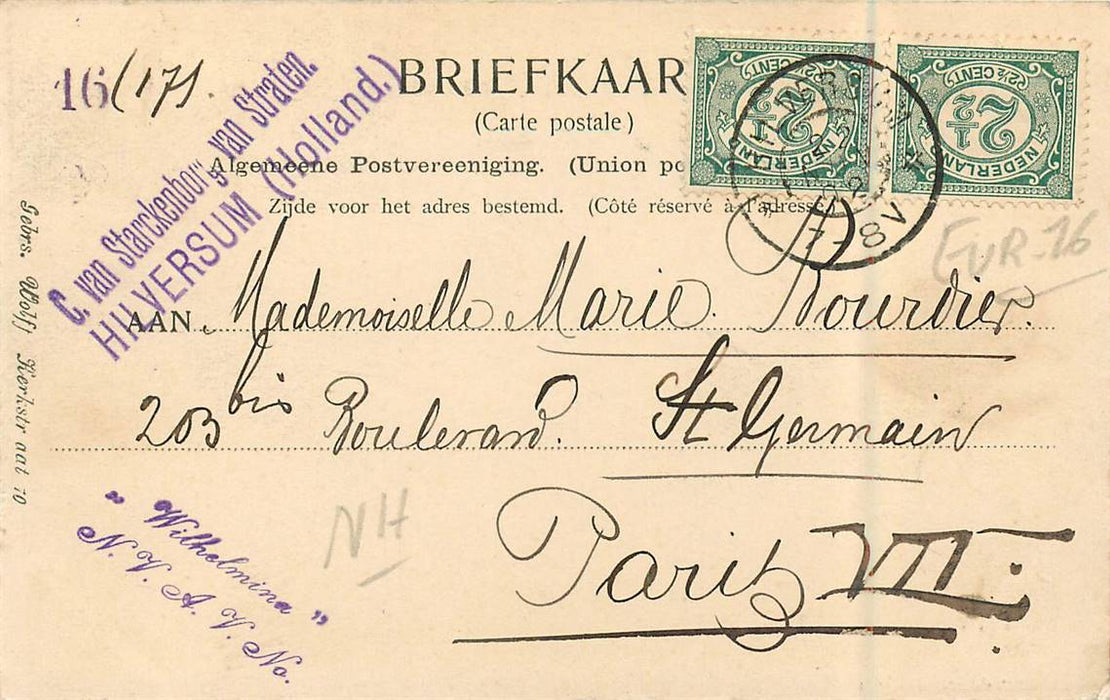 16 (17).
BRIEFKAAR
(Carte postale)
Algemeene Postvereeniging. (Union po
Zijde voor het adres bestemd. (Côté réservé à l'adresse
C. van Starckenborg van Straten.
HILVERSUM (Holland.)
2½ CENT
NEDERLAND
2½
2½ CENT
NEDERLAND
2½
7-8V
EUR-16
AAN Mademoiselle Marie Bourdier.
203 bis Boulevard. St Germain
Paris VII.
NH
"Wilhelmina"
N. V. A. V. No.
Gebrs. Wolff Kerkstraat 10